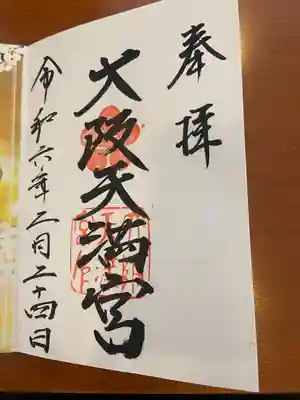 奉拝
大阪天満宮
令和六年二月二十四日